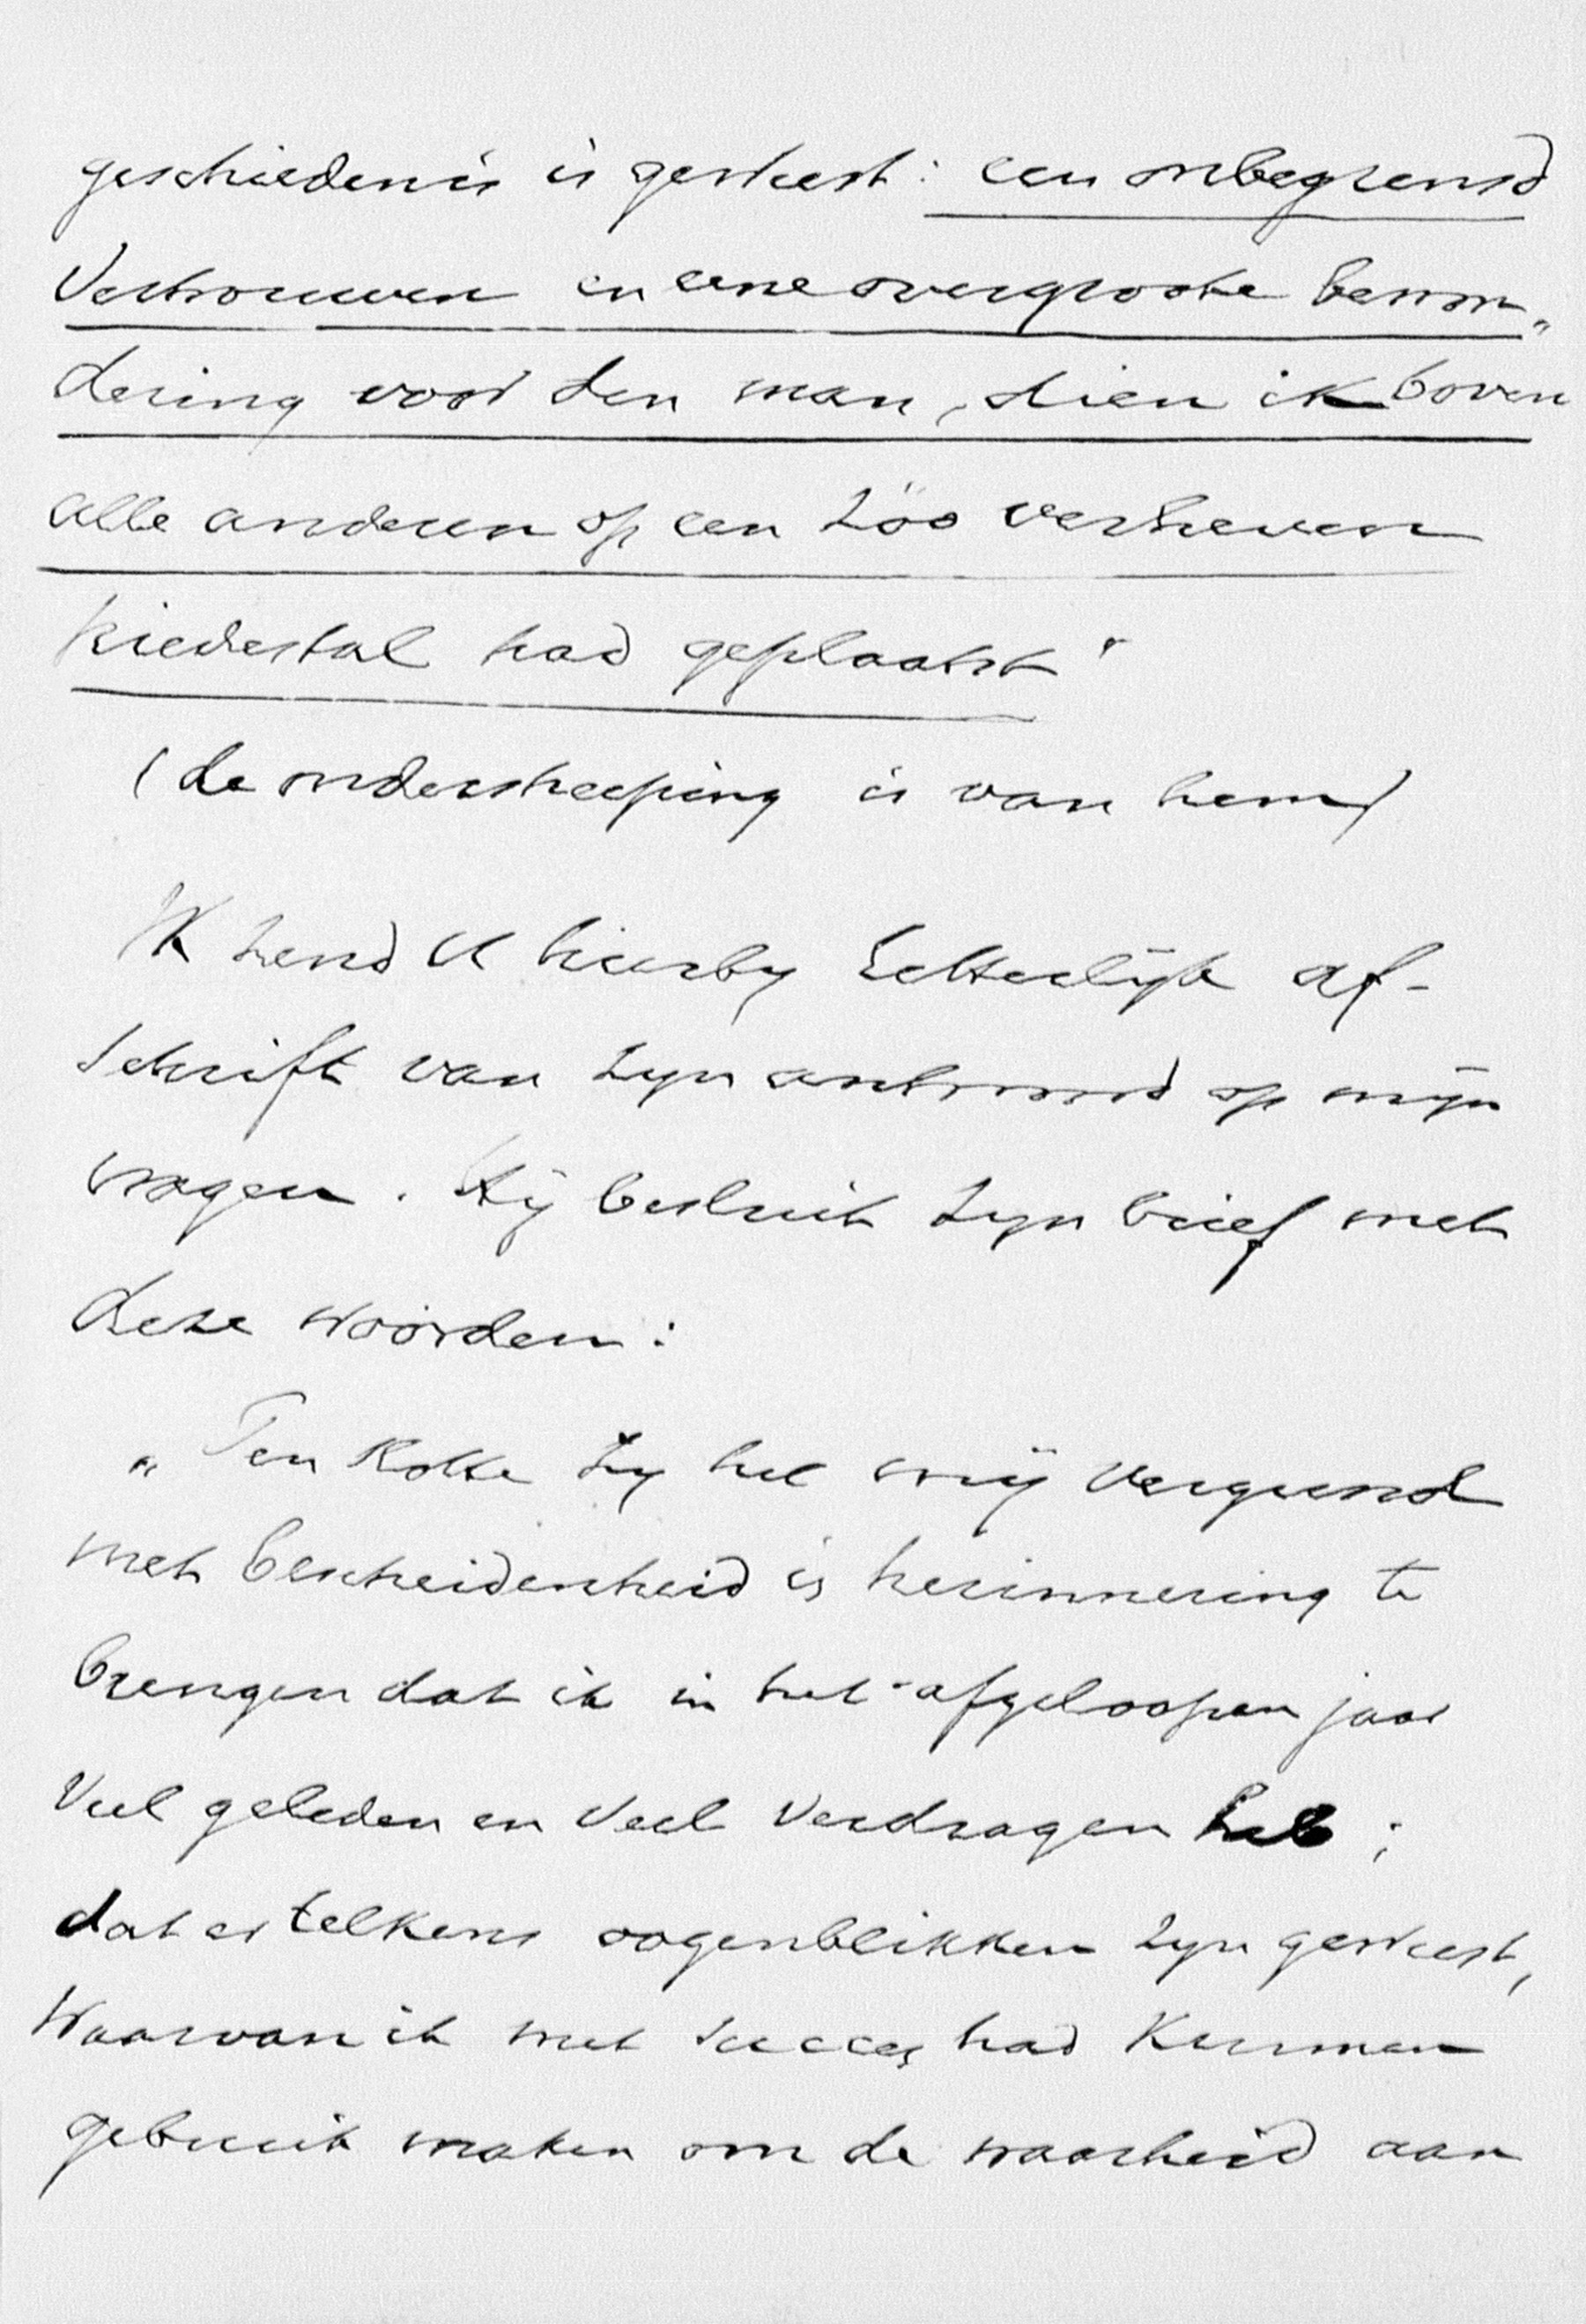 geschiedenis is geweest: een onbegrensd
Vertrouwen en eene overgroote bewon„
dering voor den man, dien ik boven
alle anderen op een zóó verheven
Piedestal had geplaatst"
(de onderstreeping is van hem)
Ik zend U hierby letterlijk af-
schrift van zyn antwoord op mijn
vragen. Hij besluit zyn brief met
deze woorden:
„Ten slotte zy het mij vergund
met bescheidenheid in herinnering te
brengen dat ik in het afgeloopen jaar
Veel geleden en veel verdragen heb;
dat er telkens oogenblikken zyn geweest,
Waarvan ik met succes had kunnen
gebruik maken om de waarheid aan